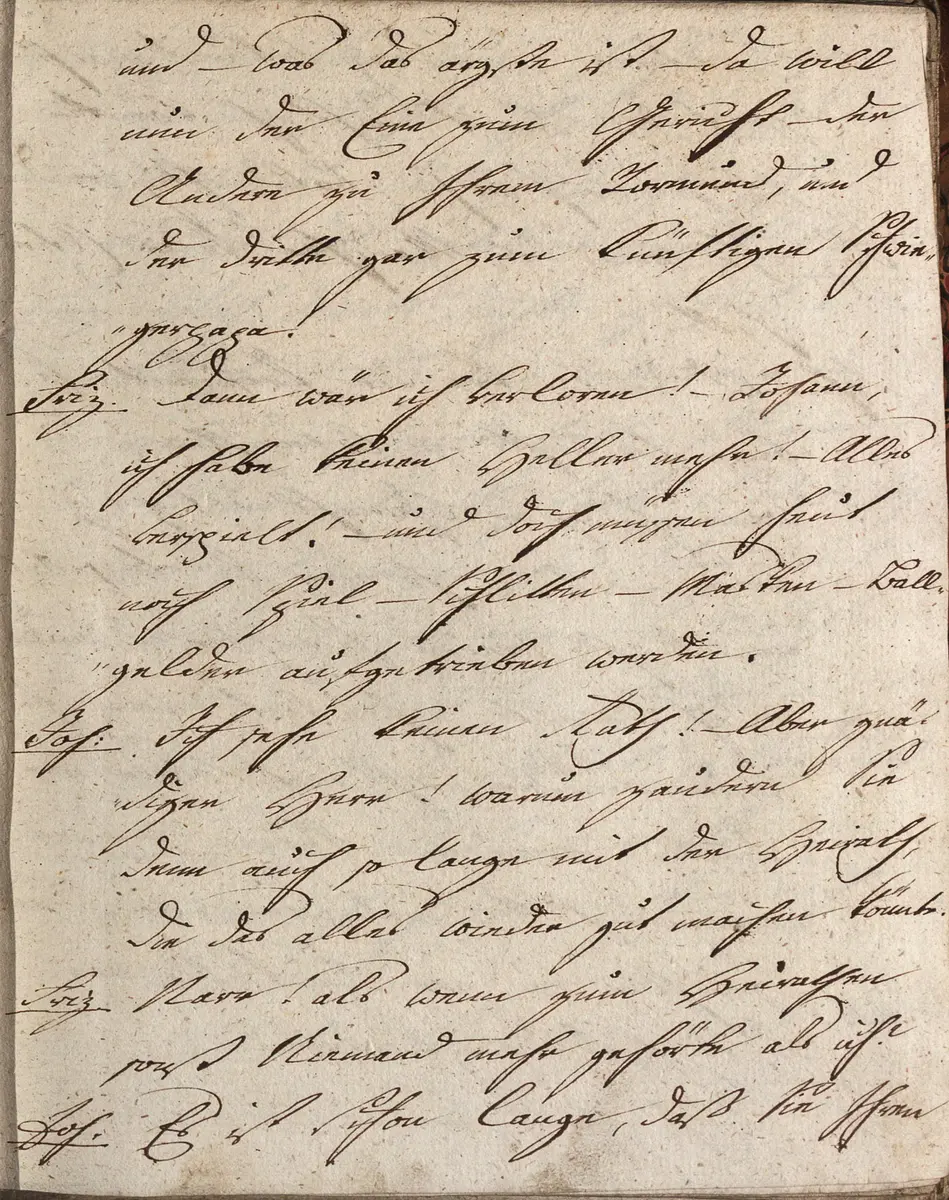 und – was das ärgste ist – da will
nun der Eine zum Gericht – der
Andere zu Ihrem Vormund, und
der dritte gar zum künftigen Schwie„
„gerpapa.
Friz. Dann wär ich verloren! – Johann,
ich habe keinen Heller mehr! – Alles
verspielt! – und doch müssen heut
noch Spiel – Schlitten – Masken – Ball„
„gelder aufgetrieben werden.
Joh: Ich sehe keinen Rath! – Aber gnä„
diger Herr! warum zaudern Sie
denn auch so lange mit der Heirath,
die das alles wieder gut machen könnte.
Friz Narr! als wenn zum Heirathen
sonst Niemand mehr gehörte als ich!
Joh. Es ist schon lange, daß Sie Ihren